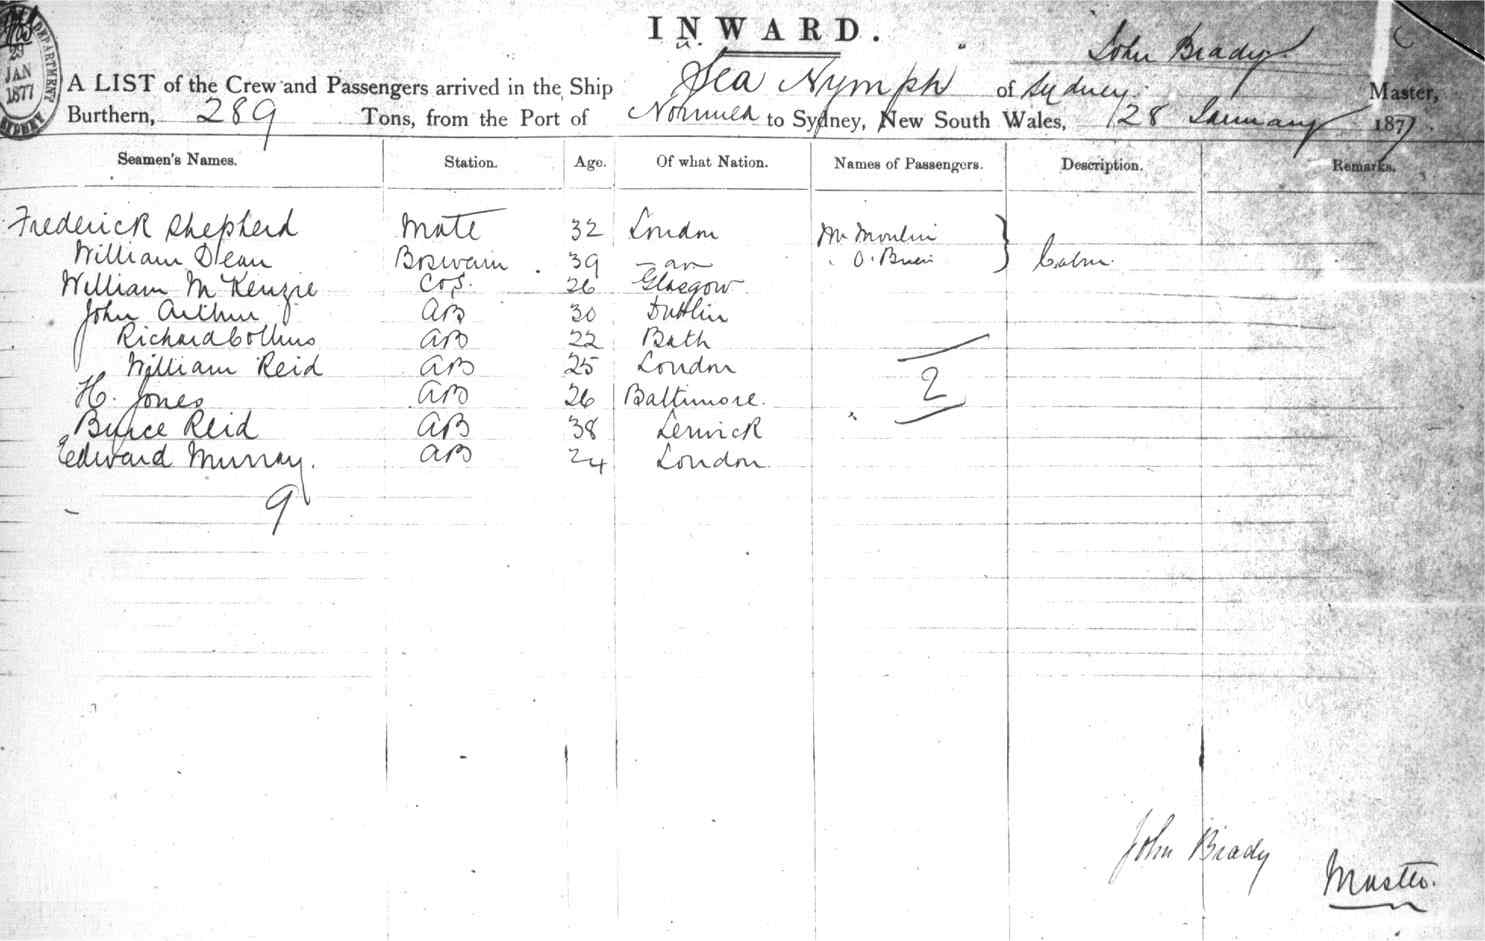 DEPARTMENT
29
JAN
1877
SYDNEY
INWARD.
John Brady
A LIST of the Crew and Passengers arrived in the Ship Sea Nymph of Sydney. Master,
Burthern, 289 Tons, from the Port of to Sydney, New South Wales, 28 January 1877.
Seamen's Names. Station. Age. Of what Nation. Names of Passengers. Description. Remarks.
Frederick Shepherd Mate 32 London Mr Moulin
William Dean Boswain 39 O'Brien Cabin
William McKenzie 26 Glasgow
John Arthur AB 30 Dublin
Richard Collins AB 22 Bath
William Reid AB 25 London
2
H. Jones AB 26 Baltimore.
Bruce Reid AB 38 Lerwick
Edward Murray. AB 24 London.
9
John Brady
Master.